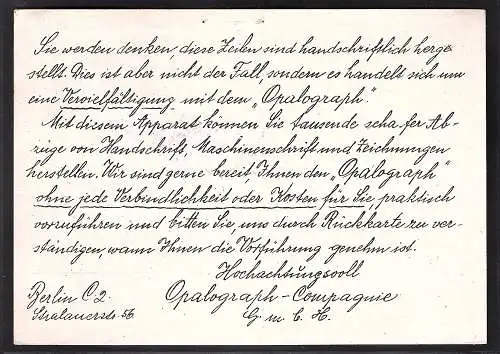 Sie werden denken, diese Zeilen sind handschriftlich herge
stellt. Dies ist aber nicht der Fall, sondern es handelt sich um
eine Vervielfältigung mit dem „Opalograph".
Mit diesem Apparat können Sie tausende scharfer Ab-
züge von Handschrift, Maschinenschrift und Zeichnungen
herstellen. Wir sind gerne bereit, Ihnen den „Opalograph"
ohne jede Verbindlichkeit oder Kosten für Sie, praktisch
vorzuführen und bitten Sie, uns durch Rückkarte zu ver-
ständigen, wann Ihnen die Vorführung genehm ist.
Hochachtungsvoll
Berlin C2. Opalograph-Compagnie
Stralauerstr 56 G. m. b. H.